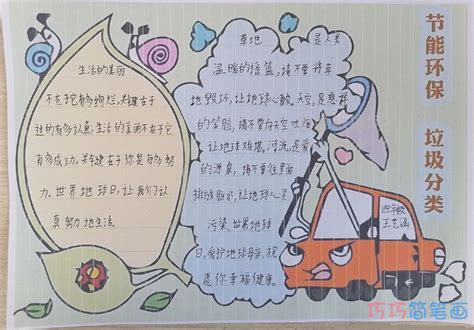 节能环保
垃圾分类
生活的美丽
不在于它有多绚烂,关键在于
过的有多认真,生活的美丽不在于它
有多成功,关键在于你是有多努
力。世界地球日,让我们认
真努力地生活。
草地 是人类
温暖的摇篮,请不要将草
地毁坏,让地球心酸。天空,是慈祥
的笑脸,请不要向天空吐烟
让地球难堪。河流,是爱
的源泉,请不要往里面
排放脏水,让地球心灵
污染。世界地球
日,爱护地球母亲,祝
愿你幸福健康。
四年级
王艺涵
巧巧简笔画